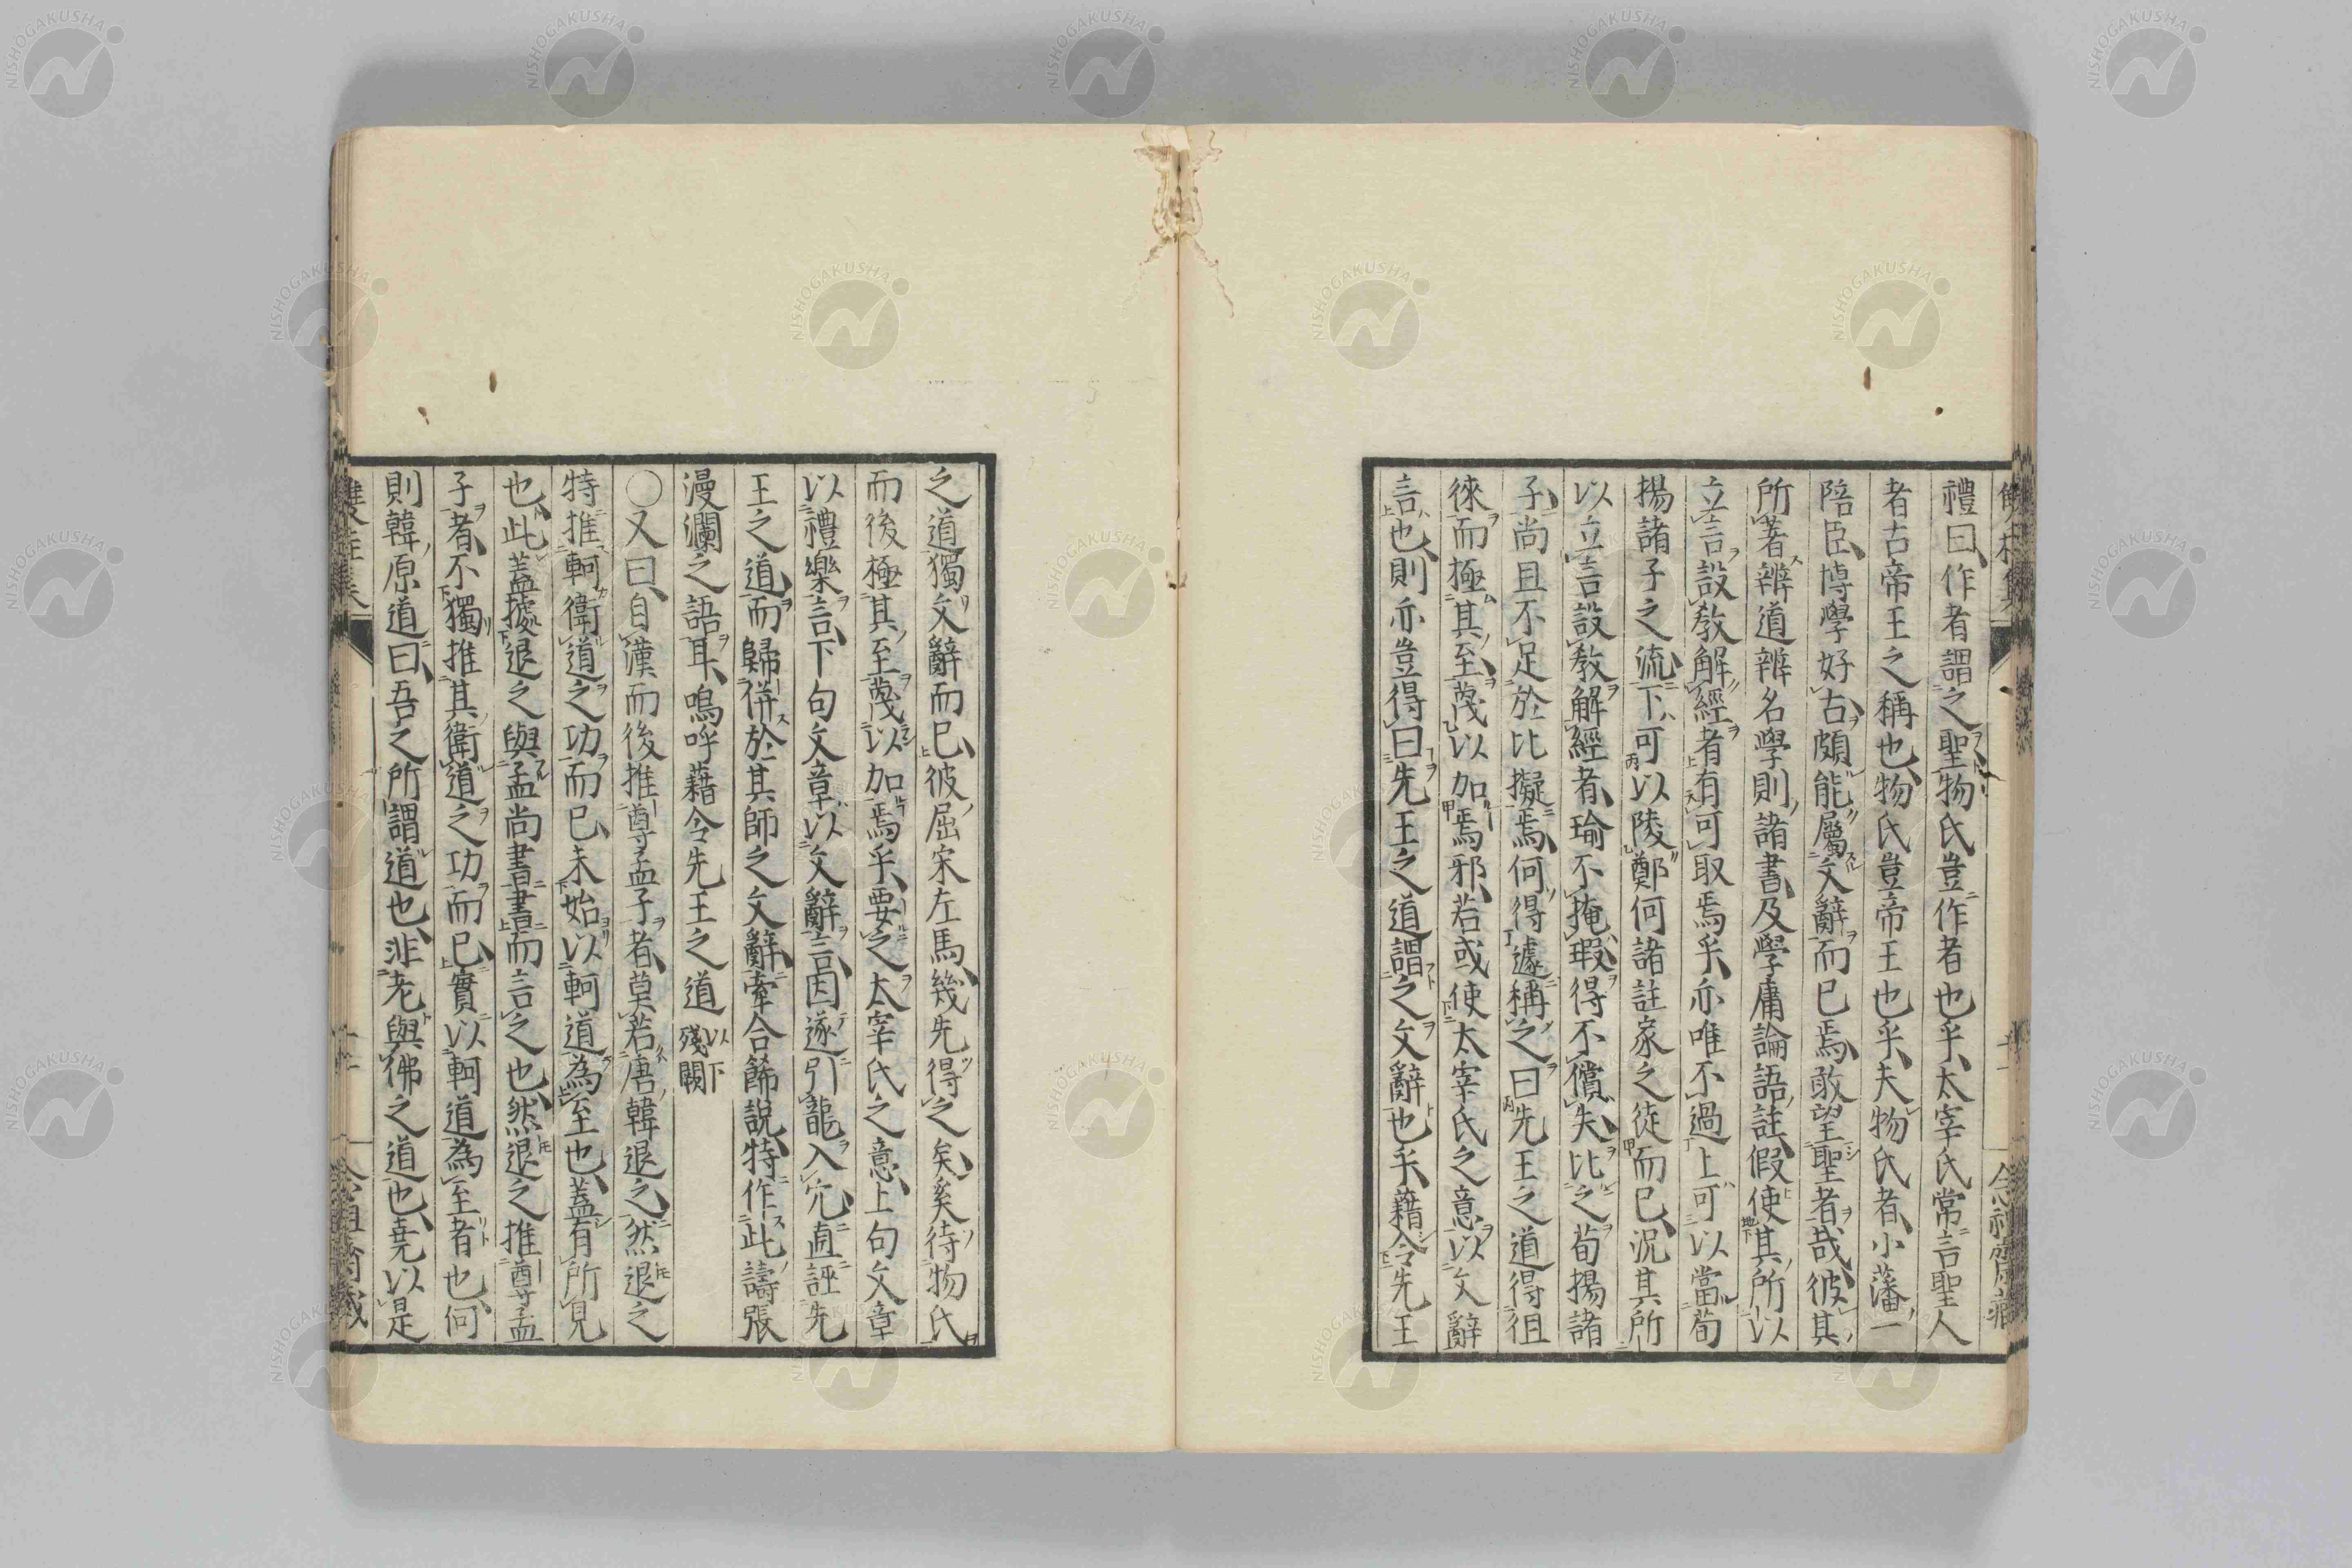 禮曰作者謂之聖物氏豈作者也乎太宰氏常言聖人
者古帝王之稱也物氏豈帝王也乎夫物氏者小藩一
陪臣博學好古頗能屬文辭而已焉敢望聖者哉彼其
所著辨道辨名學則諸書及學庸論語註假使其所以
立言設教解經者有可取焉乎亦唯不過上可以當荀
揚諸子之流下可以陵鄭何諸註家之徒而已況其所
以立言設教解經者瑜不掩瑕得不償失比之荀揚諸
子尚且不足於比擬焉何得遽稱之曰先王之道得徂
徠而極其至蔑以加焉邪若或使太宰氏之意以文辭
言也則亦豈得曰先王之道謂之文辭也乎藉令先王
之道獨文辭而已彼屈宋左馬幾先得之矣奚待物氏
而後極其至蔑以加焉乎要之太宰氏之意上句文章
以禮樂言下句文章以文辭言因遂引龍入穴直誣先
王之道而歸併於其師之文辭牽合餙說特作此譸張
漫瀾之語耳嗚呼藉令先王之道以下殘闕
○又曰自漢而後推尊孟子者莫若唐韓退之然退之
特推軻衛道之功而已未始以軻道為至也蓋有所見
也此蓋據退之與孟尚書書而言之也然退之推尊孟
子者不獨推其衛道之功而已實以軻道為至者也何
則韓原道曰吾之所謂道也非老與佛之道也堯以是